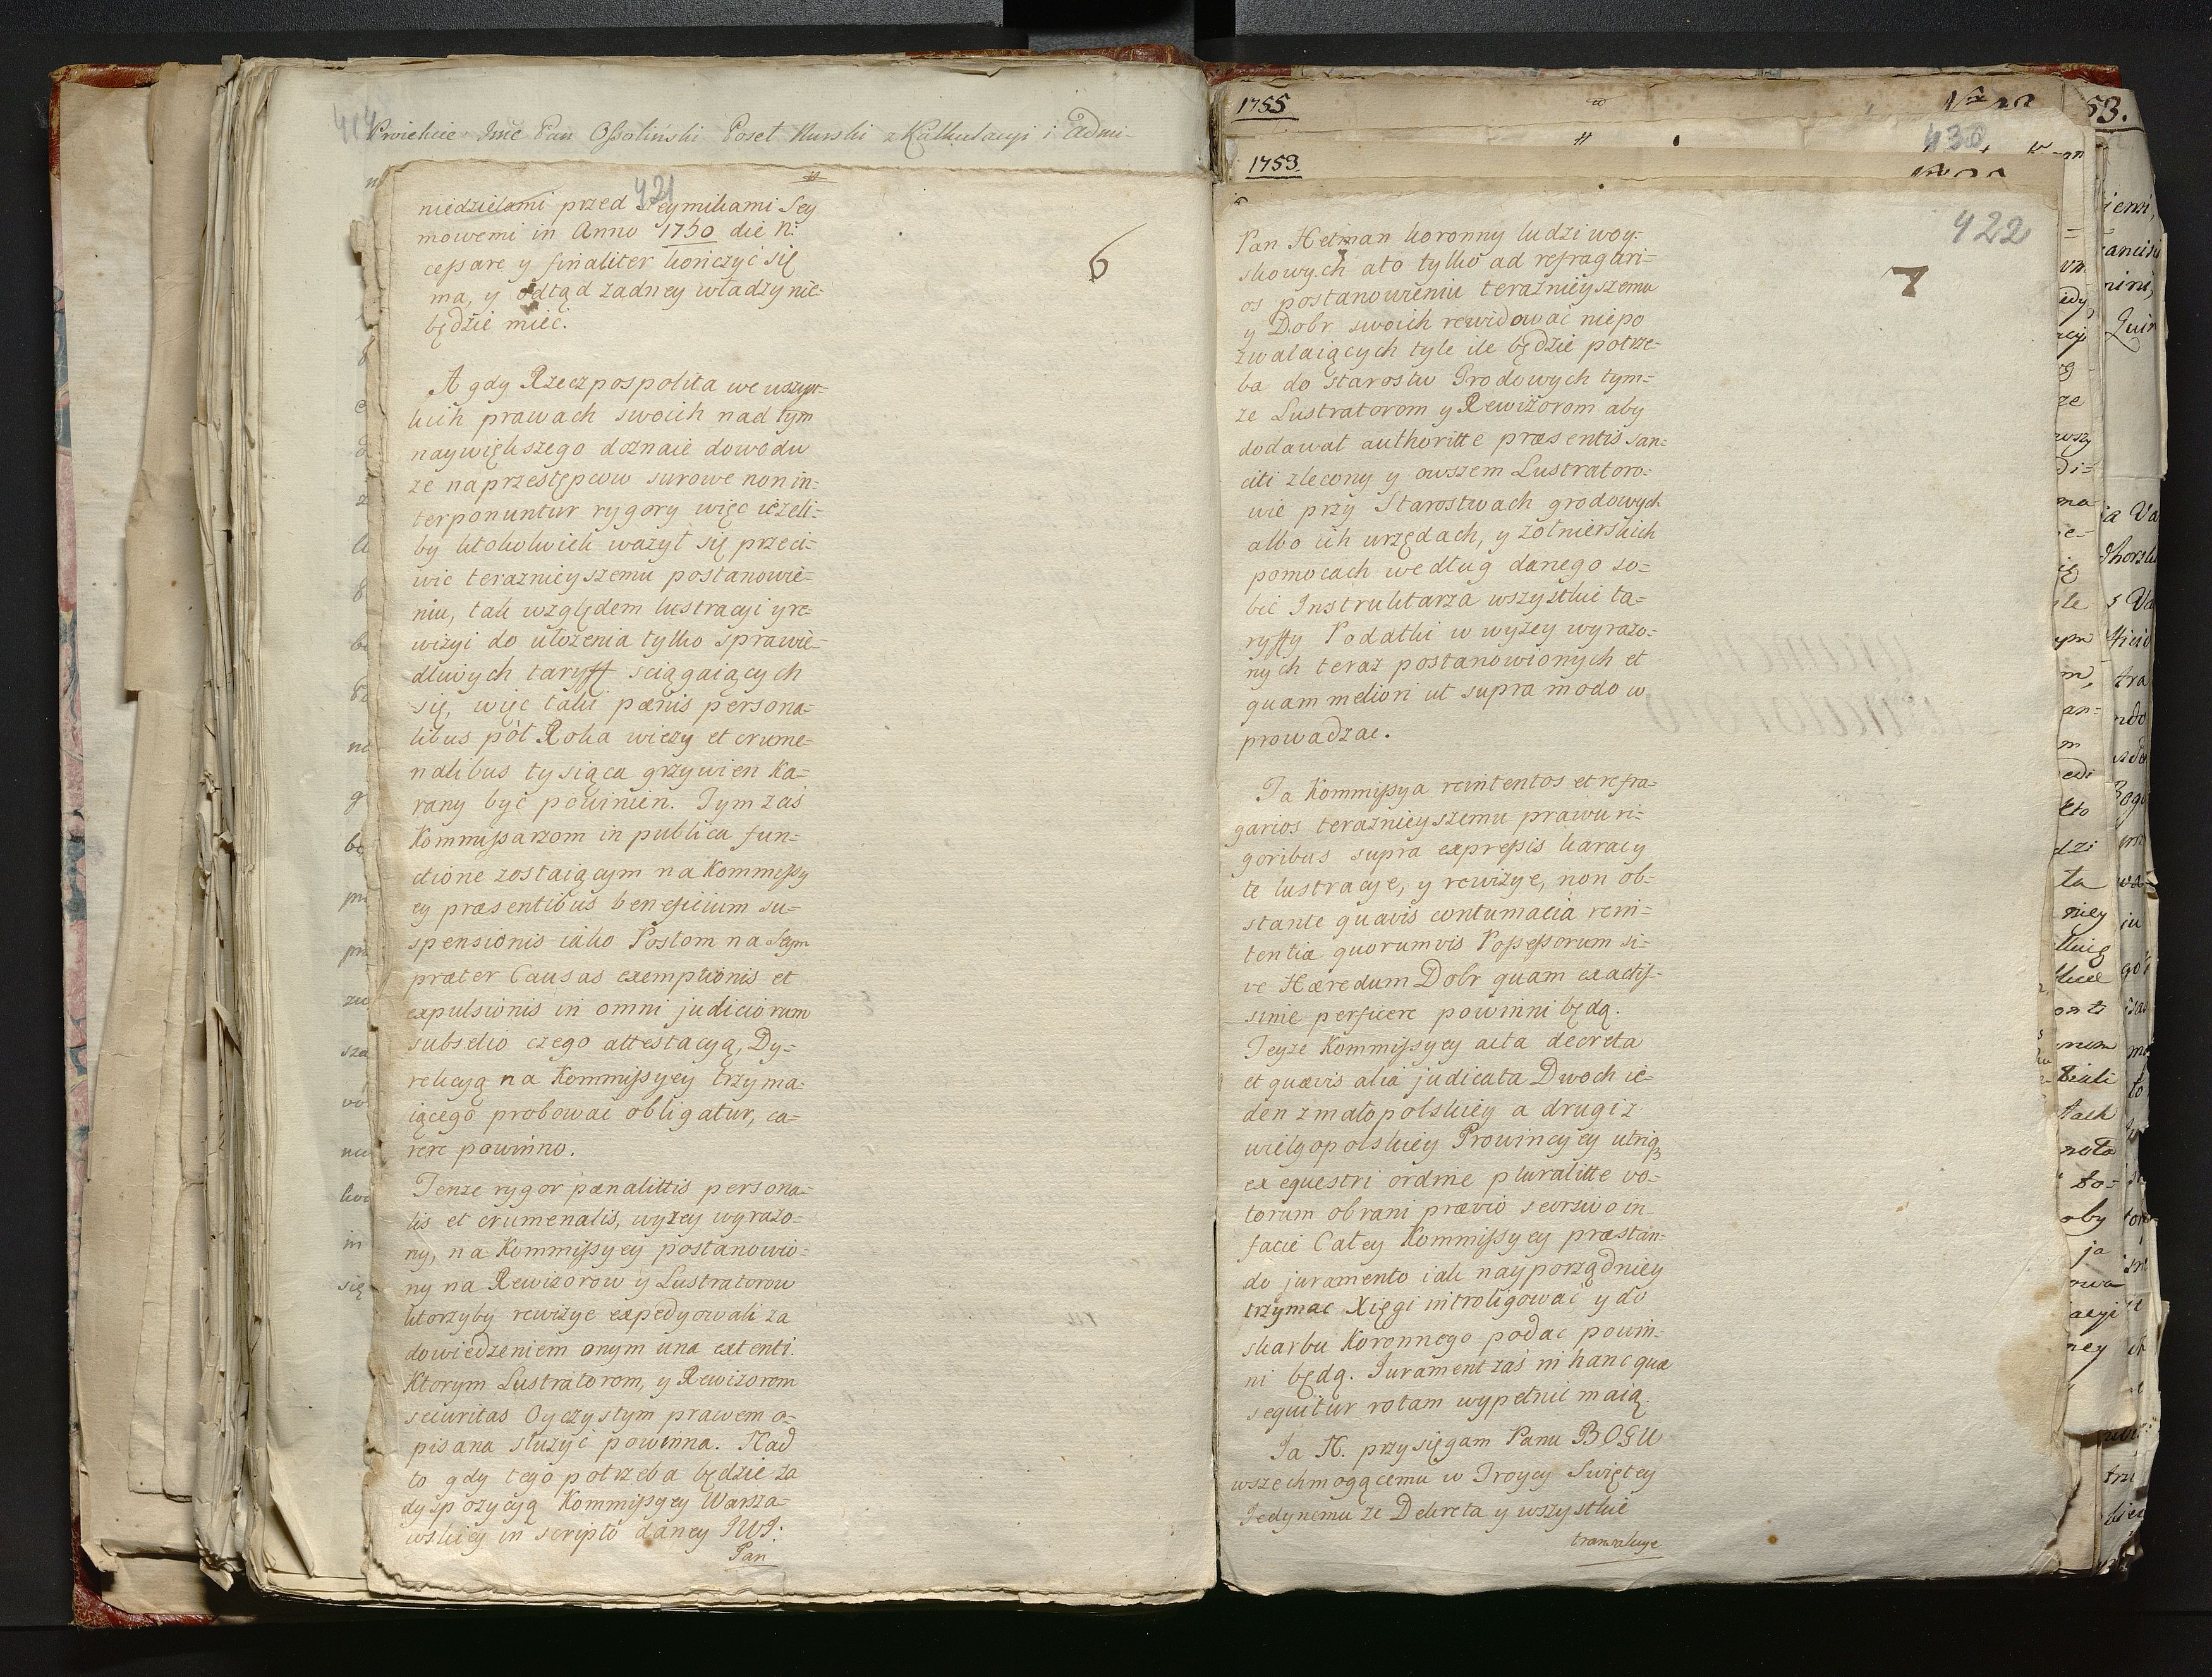 414
Proiekcie Jmć Pan Ossoliński Poseł Nurski z Kalkulacyi i Admi-
421
6
niedzielami przed Seymikami Sey
mowemi in Anno 1750 die N:
cessare y finaliter kończyć się
ma, y odtąd zadney władzy nie-
będzie mieć.
A gdy Rzeczpospolita we wszyst-
kich prawach swoich nad tym
naywiększego doznaie dowodu
ze na przestępcow surowe non in=
terponuntur rygory więc ieżeli=
by ktokolwiek ważył się przeci-
wic teraznieyszemu postanowie=
niu, tak względem lustracyi y re-
wizyi do ułożenia tylko sprawie=
dliwych taryff sciągaiących
się, więc taki pænis persona=
libus pół Roka wieży et crume-
nalibus tysiąca grzywien ka-
rany być powinien. Tym zaś
Kommissarzom in publica fun-
ctione zostaiącym na Kommissy
ey præsentibus beneficium su=
spensionis iako Posłom na Seym
præter Causas exemptionis et
expulsionis in omni judiciorum
subselio czego attestacyą, Dy-
rekcyą na Kommissyey trzyma-
iącego probować obligatur, ca-
rere powinno.
Tenze rygor pænalittis persona-
lis et crumenalis, wyżey wyrażo-
ny, na Kommissyey postanowio-
ny na Rewizorow y Lustratorow
ktorzyby rewizye expedyowali za
dowiedzeniem onym una extenti.
Ktorym Lustratorom, y Rewizorom
securitas Oyczystym prawem o-
pisana służyć powinna. Nad
to gdy tego potrzeba będzie za
dyspozycyą Kommissyey Warsza-
wskiey in scripto daney JWJ:
Pan
1755
430
53.
1753.
422
7
Pan Hetman koronny ludzi woy:
skowych a to tylko ad refragari=
os postanowieniu teraznieyszemu
y Dobr swoich rewidować niepo
zwalaiących tyle ile będzie potrze-
ba do starostw Grodowych tym=
ze Lustratorom y Rewizorom aby
dodawał authoritte præsentis san=
citi zlecony y owszem Lustratoro-
wie przy Starostwach grodowych
albo ich urzędach, y żołnierskich
pomocach według danego so-
bie Instruktarza wszystkie ta-
ryffy Podatki w wyżey wyrażo-
nych teraz postanowionych et
quam meliori ut supra modo w
prowadzac.
Ta Kommissya renitentos et refra-
garios teraznieyszemu prawu ri-
goribus supra expressis karacy
te lustracye, y rewizye, non ob-
stante quavis contumacia reni-
tentia quorumvis Possessorum si-
ve Hæredum Dobr quam exactis-
sime perficere powinni będą.
Teyze Kommissyey acta decreta
et quævis alia judicata Dwoch ie-
den z małopolskiey a drugi z
wielgopolskiey Prowincyey utriq3
ex equestri ordine pluralitte vo-
torum obrani prævio seorsivo in
facie Całey Kommissyey præstan=
do juramento iak nayporządniey
trzymac Xięgi introligować y do
skarbu Koronnego podac powin-
ni będą. Jurament zaś in hanc quæ
sequitur rotam wypełnic maią.
Ja N. przysięgam Panu BOGU
wszechmogącemu w Troycy Swiętey
Jedynemu że Dekreta y wszystkie
tranzakcye